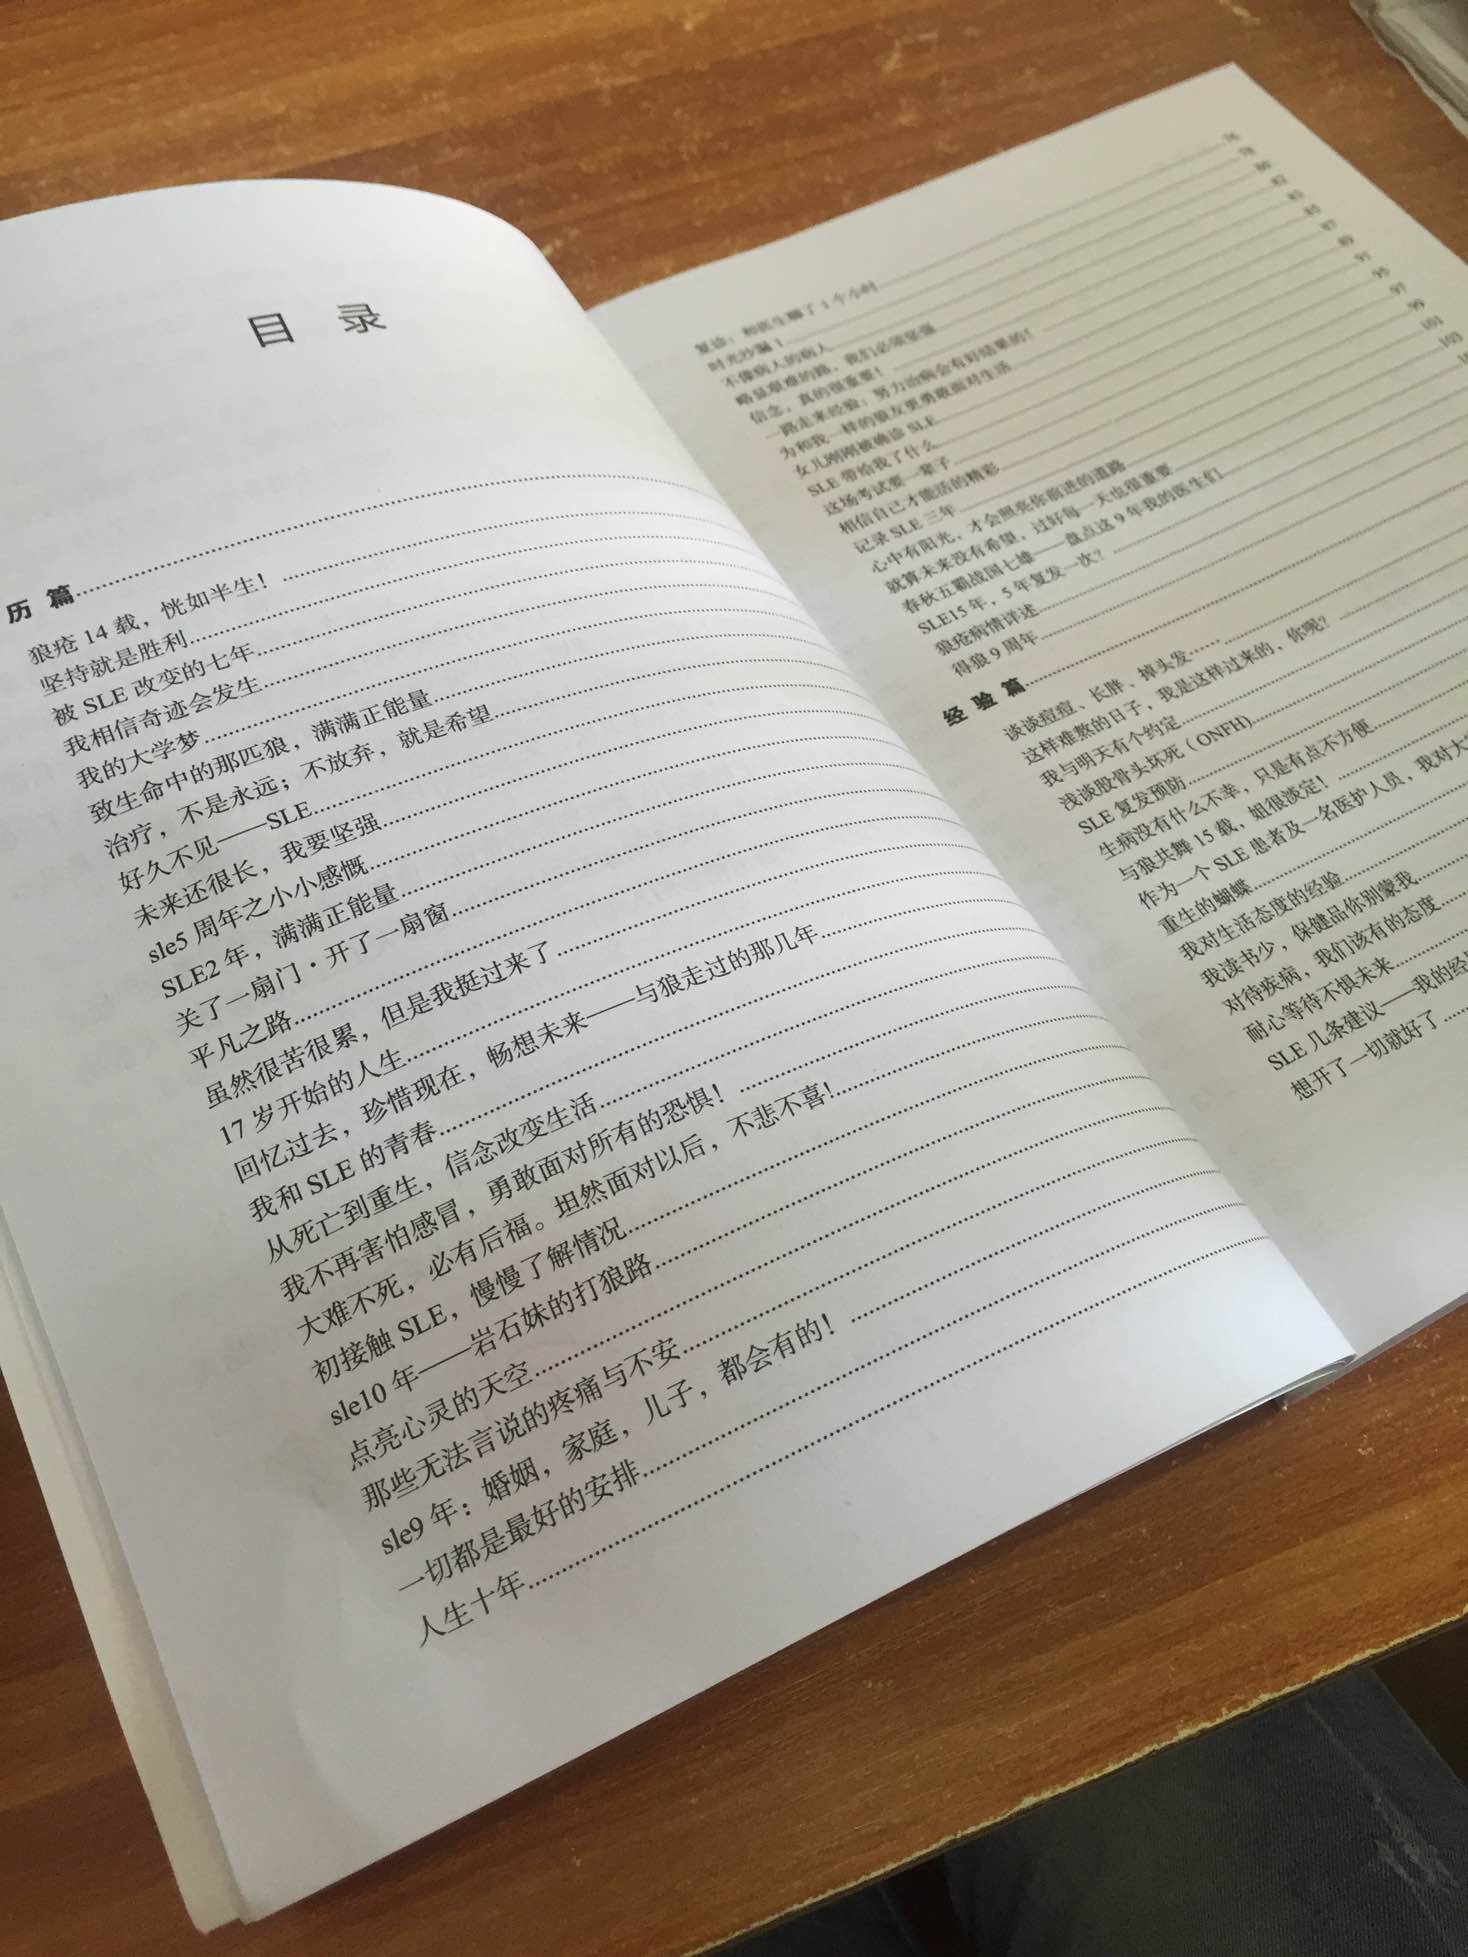 目 录
历 篇
狼疮 14 载，恍如半生！
坚持就是胜利
被 SLE 改变的七年
我相信奇迹会发生
我的大学梦
致生命中的那匹狼，满满正能量
治疗，不是永远；不放弃，就是希望
好久不见——SLE
未来还很长，我要坚强
sle5 周年之小小感慨
SLE2 年，满满正能量
关了一扇门·开了一扇窗
平凡之路
虽然很苦很累，但是我挺过来了
17 岁开始的人生
回忆过去，珍惜现在，畅想未来——与狼走过的那几年
我和 SLE 的青春
从死亡到重生，信念改变生活
我不再害怕感冒，勇敢面对所有的恐惧！
大难不死，必有后福。坦然面对以后，不悲不喜！
初接触 SLE，慢慢了解情况
sle10 年——岩石妹的打狼路
点亮心灵的天空
那些无法言说的疼痛与不安
sle9 年：婚姻，家庭，儿子，都会有的！
一切都是最好的安排
人生十年
复诊：和医生聊了 1 个小时
时光沙漏 1
不像病人的病人
略显艰难的路，我们必须坚强
信念，真的很重要！
一路走来经验：努力治病会有好结果的！
为和我一样的狼友更勇敢面对生活
女儿刚刚被确诊 SLE
SLE 带给我了什么
这场考试要一辈子
相信自己才能活的精彩
记录 SLE 三年
心中有阳光，才会照亮你前进的道路
就算未来没有希望，过好每一天也很重要
春秋五霸战国七雄——盘点这 9 年我的医生们
SLE15 年，5 年复发一次？
狼疮病情详述
得狼 9 周年
经 验 篇
谈谈痘痘、长胖、掉头发
这样难熬的日子，我是这样过来的，你呢？
我与明天有个约定
浅谈股骨头坏死（ONFH）
SLE 复发预防
生病没有什么不幸，只是有点不方便
与狼共舞 15 载，姐很淡定！
作为一个 SLE 患者及一名医护人员，我对大
重生的蝴蝶
我对生活态度的经验
我读书少，保健品你别蒙我
对待疾病，我们该有的态度
耐心等待不惧未来
SLE 几条建议——我的经
想开了一切就好了